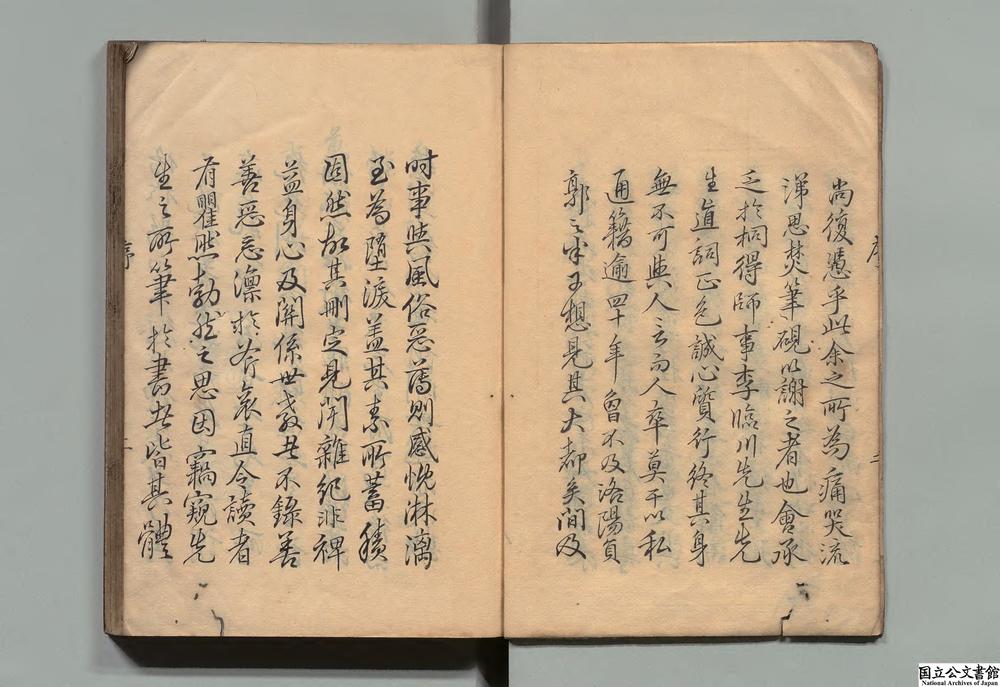 尚復憑乎此余之所為痛哭流
涕思焚筆硯以謝之者也會承
乏於桐得師事李臨川先生先
生道詞正色誠心質行終其身
無不可與人言而人卒莫干以私
通籍逾四十年曾不及洛陽負
郭之半可想見其大都矣間及
序
二
时事與風俗惡薄則感慨淋漓
至為墮淚蓋其素所蓄積
固然故其刪定見聞雜紀非裨
益身心及關係世教丗不錄善
善惡惡凛於斧衮直令讀者
有瞿然勃然之思因竊窺先
生之所筆於書者皆其體
序
二
国立公文書館
National Archives of Japan